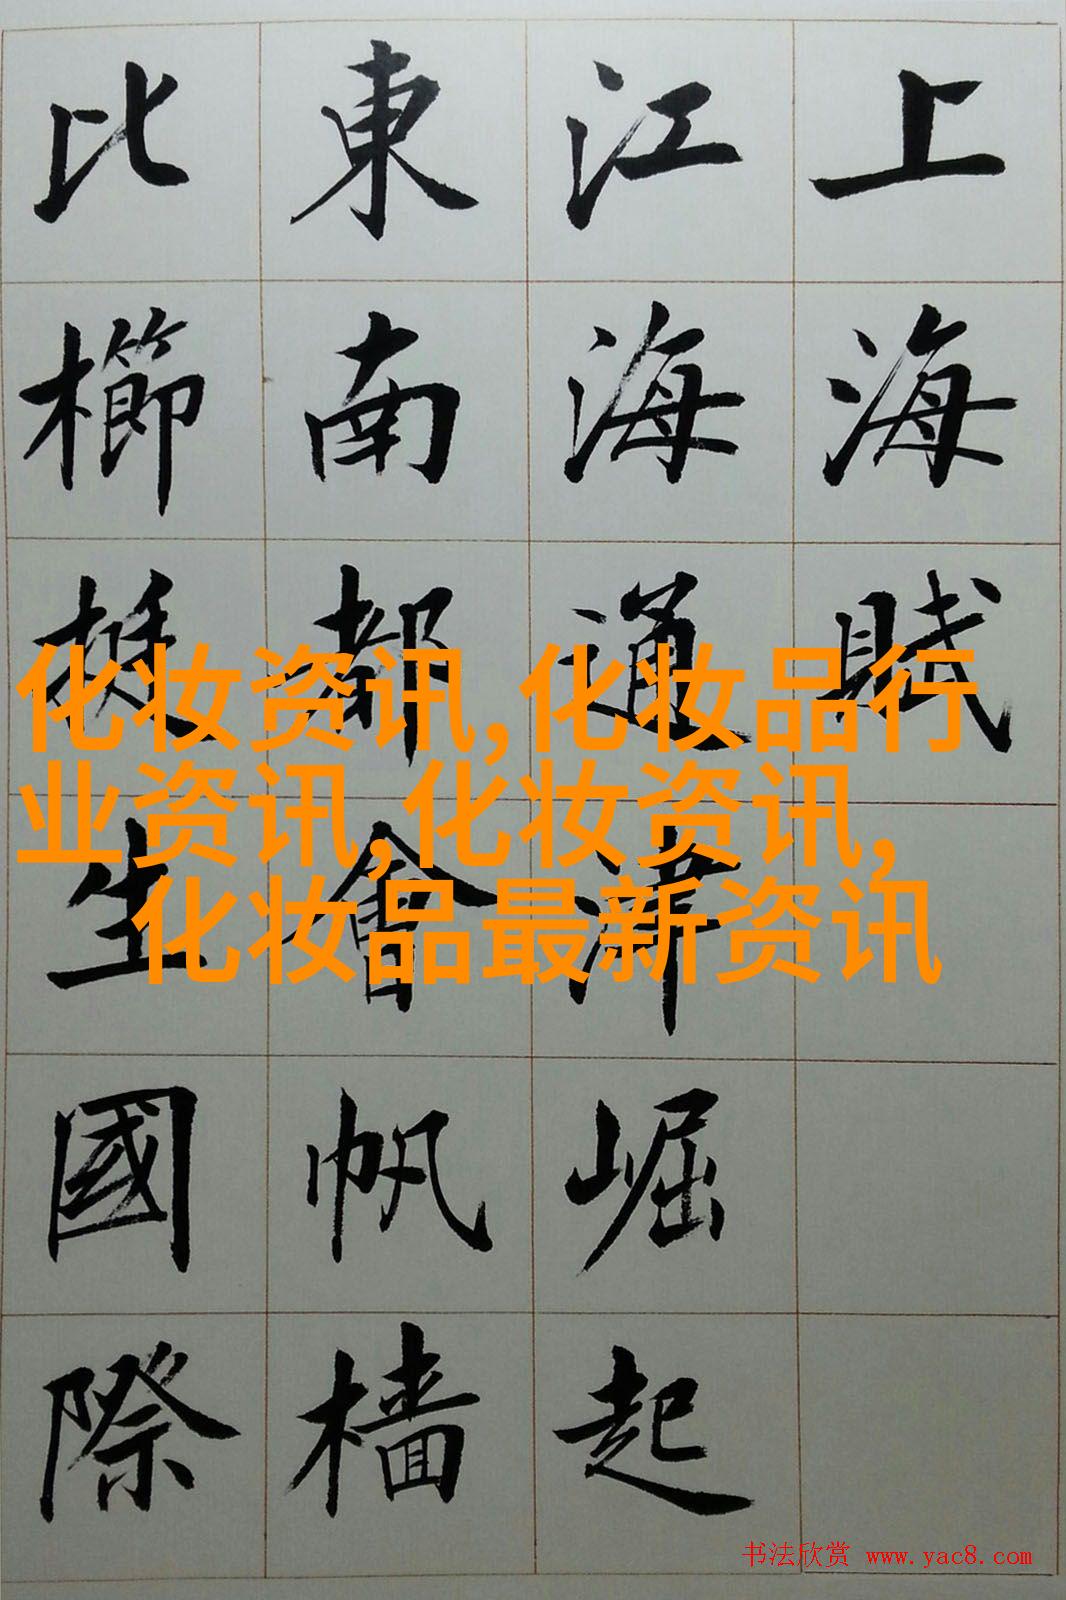 上海賦
江海通津崛起
東南都會帆檣
比櫛挺生國際
化妆资讯,化妆品行
业资讯,化妆资讯,
化妆品最新资讯
书法欣赏 www.yac8.com